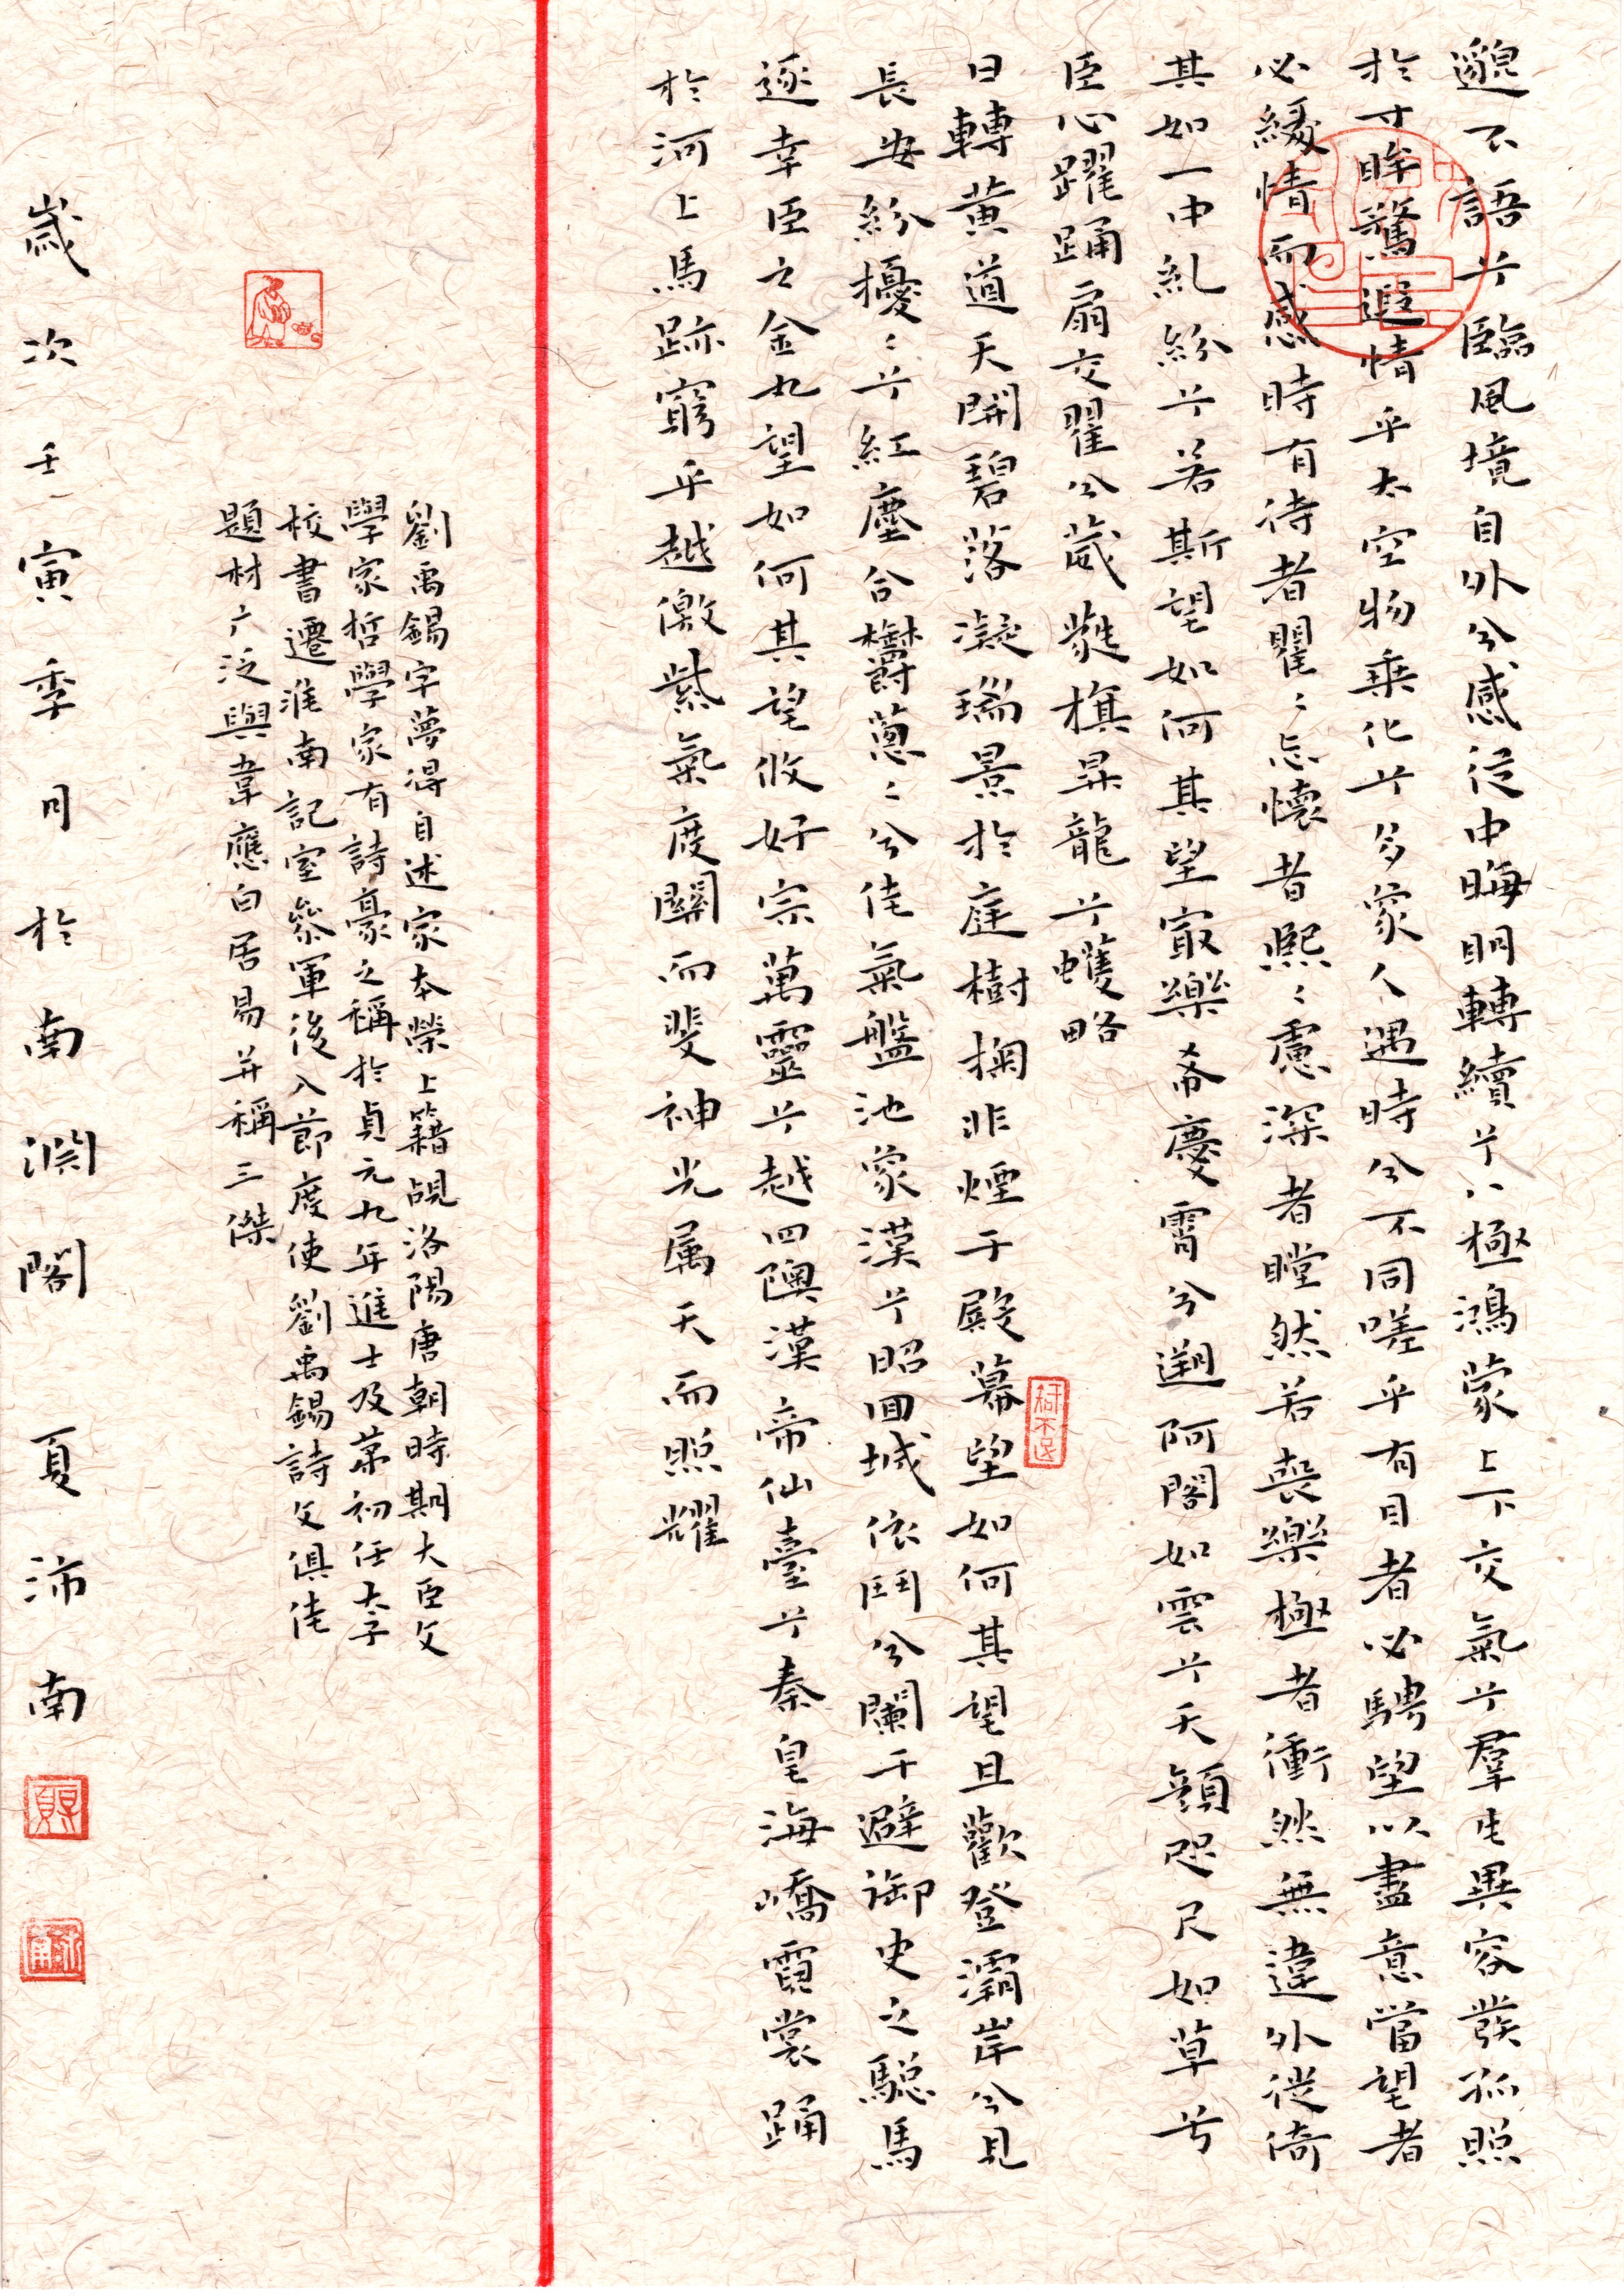 邈不語兮臨風境自外兮感從中晦明轉續兮八極鴻蒙上下交氣兮羣生異容發孤照
於寸眸驚遐情乎太空物乘化兮多象人遇時兮不同嗟乎有目者必騁望以盡意當望者
必緩情而感時有待者瞿〻忘懷者熙〻慮深者瞠然若喪樂極者衝然無違外徙倚
其如一中糺紛兮若斯望如何其望最樂希慶霄兮遡阿閣如雲兮天顏咫尺如草兮
臣心躍踊扇交翟兮葳蕤旗昇龍兮蠖略
日轉黃道天開碧落凝瑞景於庭樹掬非煙于殿幕望如何其望且歡登灞岸兮見
長安紛擾〻兮紅塵合鬱蔥〻兮佳氣盤池象漢兮昭回城依鬥兮闌干避御史之驄馬
逐幸臣之金丸望如何其望攸好宗萬靈兮越四隩漢帝仙臺兮秦皇海嶠霓裳踊
於河上馬跡窮乎越徼紫氣度關而斐神光屬天而照耀
劉禹錫字夢得自述家本滎上籍覘洛陽唐朝時期大臣文
學家哲學家有詩豪之稱於貞元九年進士及第初任太子
校書遷淮南記室參軍後入節度使劉禹錫詩文俱佳
題材广泛與韋應白居易并稱三傑
歲次壬寅季月於南潤閣夏沛南